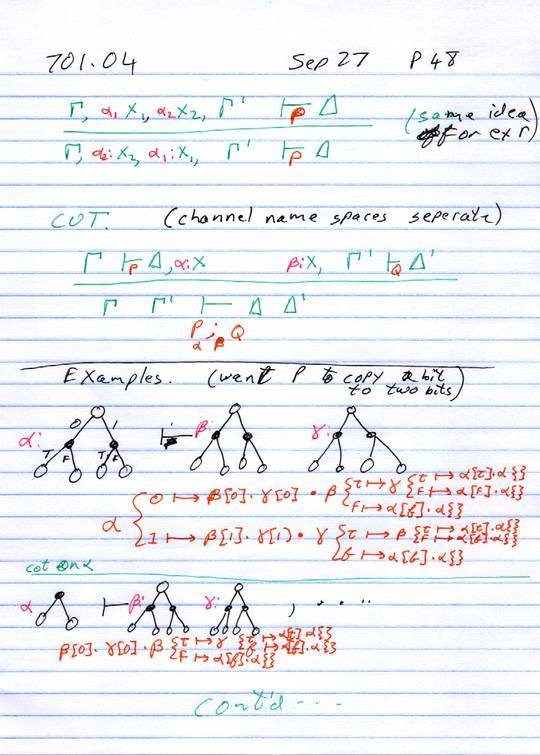 701.04 Sep 27 P 48
Γ, α₁ X₁, α₂ X₂, Γ' ⊢P Δ (same idea
Γ, α₂: X₂, α₁: X₁, Γ' ⊢P Δ for ex r)
CUT. (channel name spaces seperate)
Γ ⊢P Δ, α: X β: X, Γ' ⊢Q Δ'
Γ Γ' ⊢ Δ Δ'
P α;β Q
Examples. (want P to copy a bit
to two bits)
α: 0 1 T F T F ⊢ β: γ:
α { 0 ↦ β[0]. γ[0] . β { τ ↦ γ { τ ↦ α[τ].α{}
F ↦ α[F].α{}
F ↦ α[f].α{}
1 ↦ β[1]. γ[1] . γ { τ ↦ β { τ ↦ α[τ].α{}
F ↦ α[f].α{}
f ↦ α[f].α{}
cut on α
α ⊢ β: γ: , . . . .
β[0]. γ[0] . β { τ ↦ γ { τ ↦ α[τ].α{}
F ↦ α[f].α{}
F ↦ α[f].α{}
Cont'd - - - -